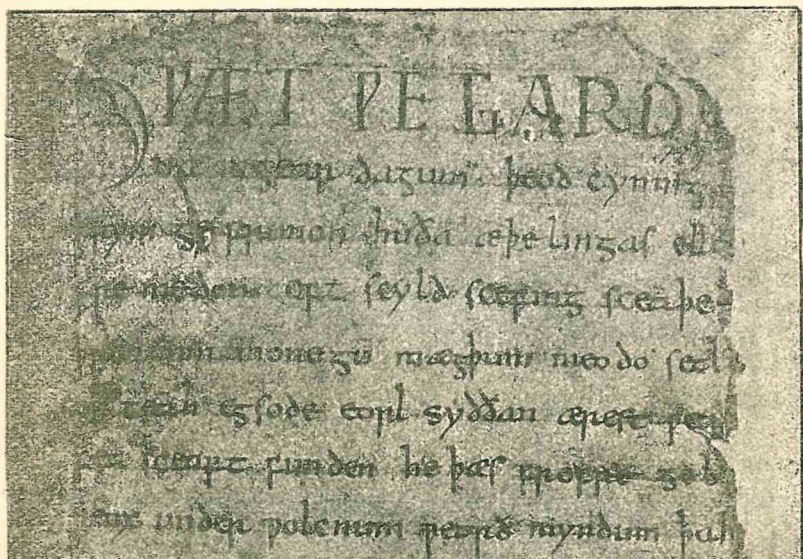 HǷÆT ǷE GARD
na ingear dagum þeod cyning
þrym gefrunon huða æþelingas elle
fremedon oft scyld scefing sceaþe
monegū mægþum meodo setl
ofteah egsode eorl syððan ærest
sceaft funden he þæs frofre geb
under ƿolcnum ƿeorð myndum þah